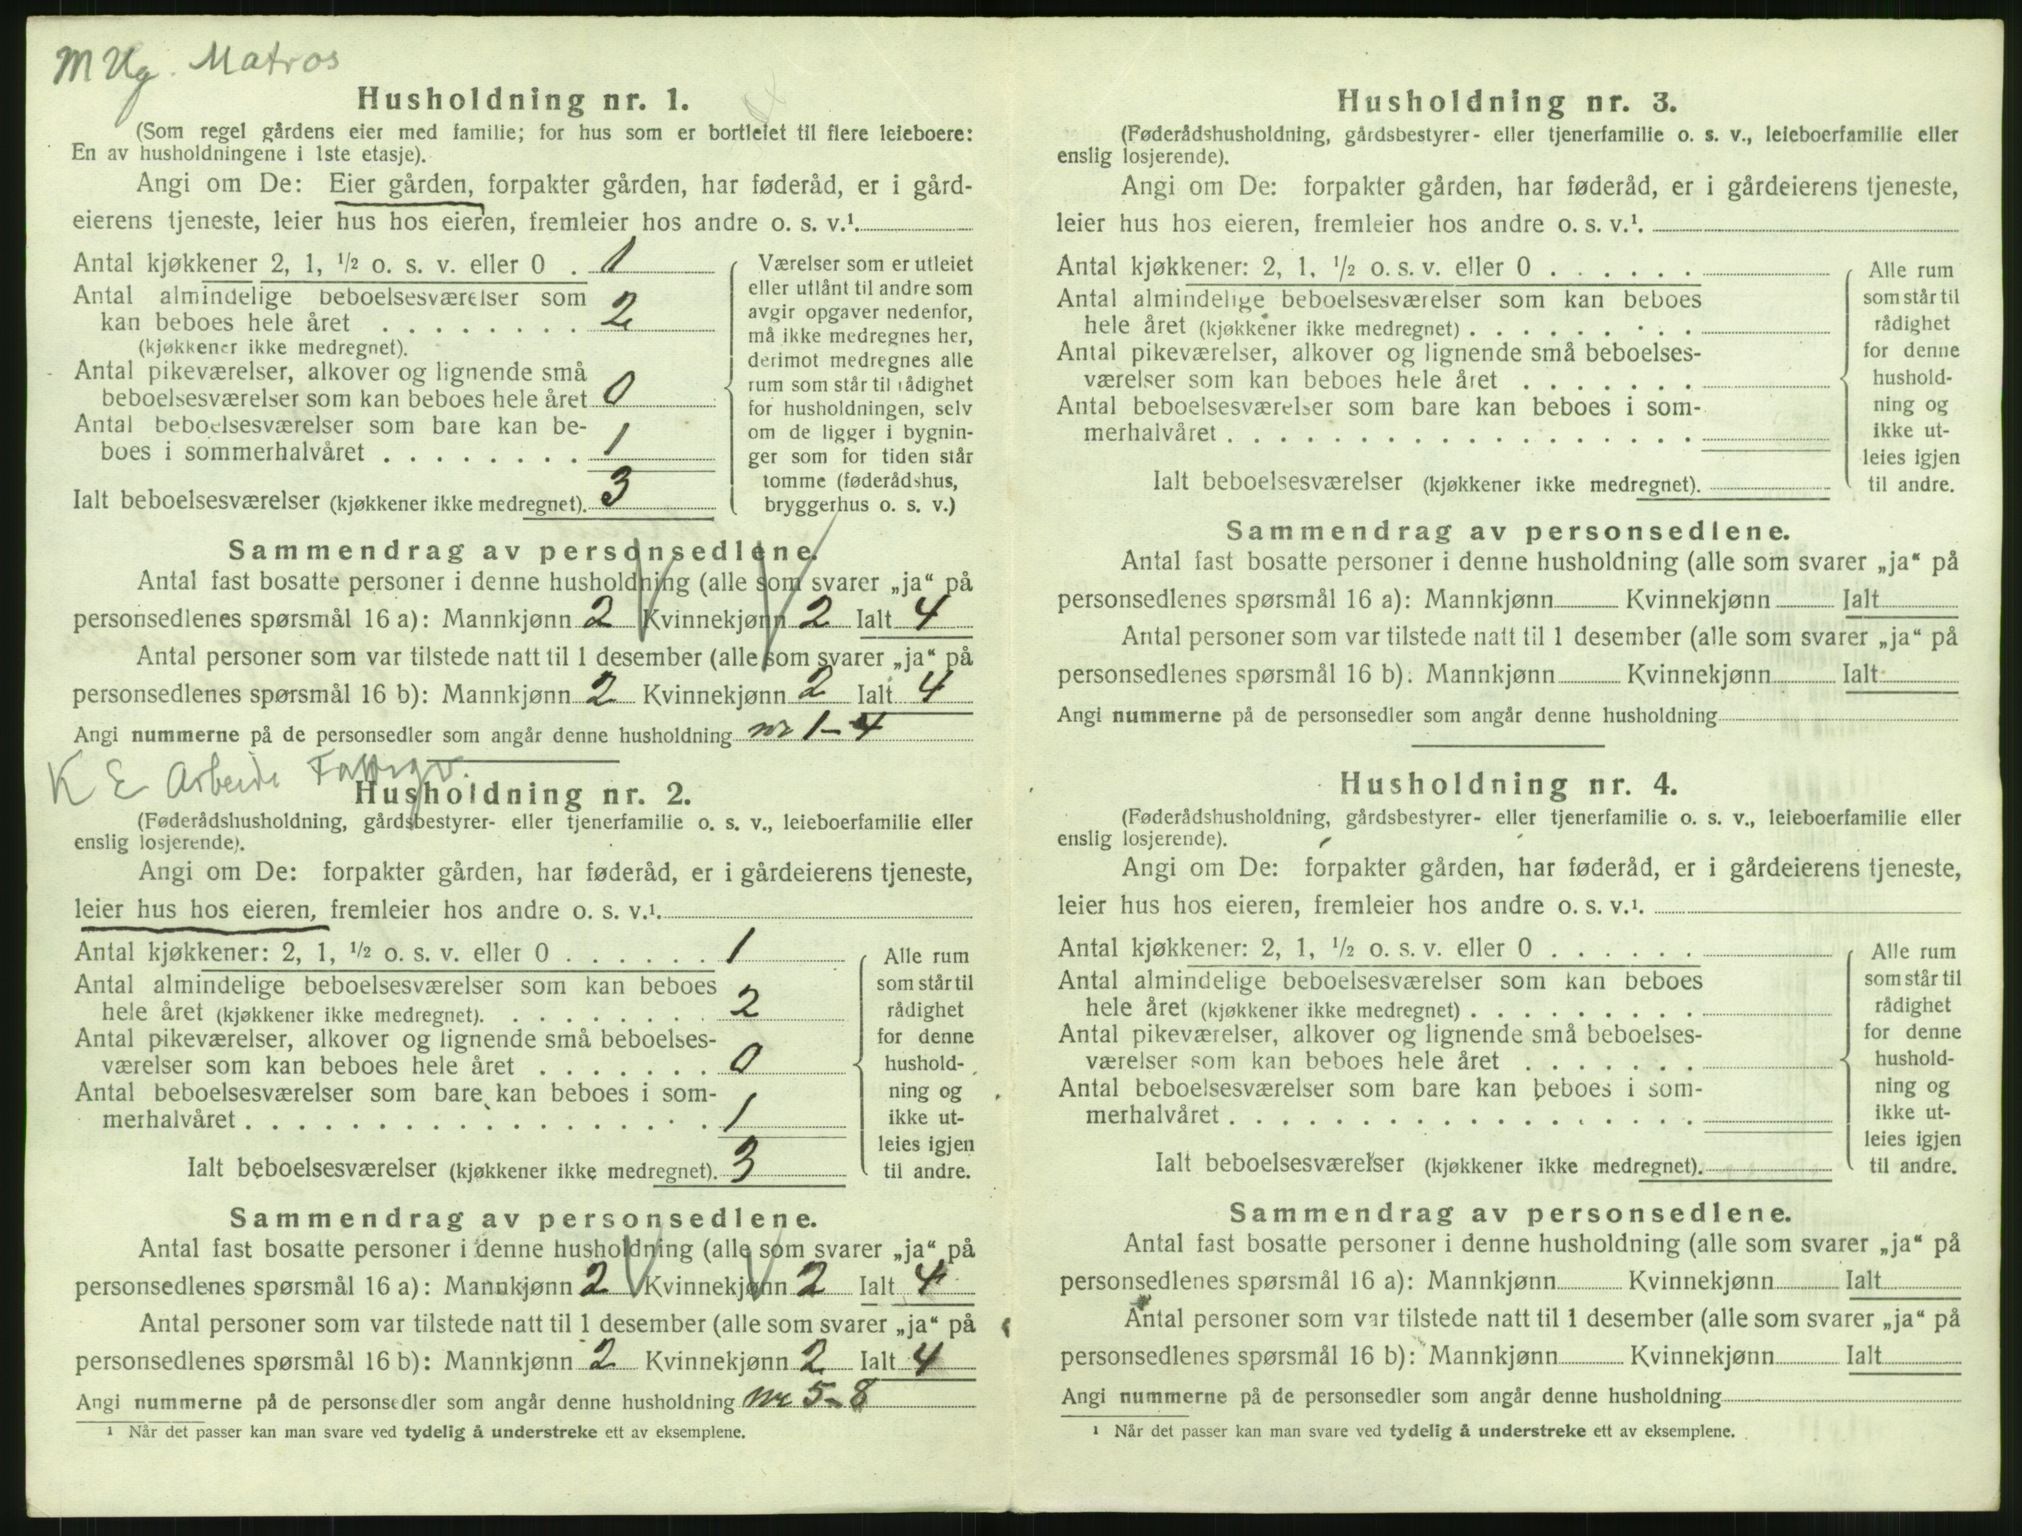 M Ug. Matros
Husholdning nr. 1.
(Som regel gårdens eier med familie; for hus som er bortleiet til flere leieboere:
En av husholdningene i 1ste etasje).
Angi om De: Eier gården, forpakter gården, har føderåd, er i gård-
eierens tjeneste, leier hus hos eieren, fremleier hos andre o. s. v.¹
Antal kjøkkener 2, 1, ½ o. s. v. eller 0 . 1
Antal almindelige beboelsesværelser som
kan beboes hele året . . . . . . . . 2
(kjøkkener ikke medregnet).
Antal pikeværelser, alkover og lignende små
beboelsesværelser som kan beboes hele året 0
Antal beboelsesværelser som bare kan be-
boes i sommerhalvåret . . . . . . . . 1
Ialt beboelsesværelser (kjøkkener ikke medregnet). 3
Værelser som er utleiet
eller utlånt til andre som
avgir opgaver nedenfor,
må ikke medregnes her,
derimot medregnes alle
rum som står til rådighet
for husholdningen, selv
om de ligger i bygnin-
ger som for tiden står
tomme (føderådshus,
bryggerhus o. s. v.)
Sammendrag av personsedlene.
Antal fast bosatte personer i denne husholdning (alle som svarer „ja“ på
personsedlenes spørsmål 16 a): Mannkjønn 2 Kvinnekjønn 2 Ialt 4
Antal personer som var tilstede natt til 1 desember (alle som svarer „ja“ på
personsedlenes spørsmål 16 b): Mannkjønn 2 Kvinnekjønn 2 Ialt 4
Angi nummerne på de personsedler som angår denne husholdning nr 1-4
K E Arbeide Fattigv.
Husholdning nr. 2.
(Føderådshusholdning, gårdsbestyrer- eller tjenerfamilie o. s. v., leieboerfamilie eller
enslig losjerende).
Angi om De: forpakter gården, har føderåd, er i gårdeierens tjeneste,
leier hus hos eieren, fremleier hos andre o. s. v.¹.
Antal kjøkkener: 2, 1, ½ o. s. v. eller 0 . . . . . . 1
Antal almindelige beboelsesværelser som kan beboes
hele året (kjøkkener ikke medregnet). . . . . . . . . 2
Antal pikeværelser, alkover og lignende små beboelses-
værelser som kan beboes hele året . . . . . . . 0
Antal beboelsesværelser som bare kan beboes i som-
merhalvåret . . . . . . . . . . . . . . . . . . 1
Ialt beboelsesværelser (kjøkkener ikke medregnet). 3
Alle rum
som står til
rådighet
for denne
hushold-
ning og
ikke ut-
leies igjen
til andre.
Sammendrag av personsedlene.
Antal fast bosatte personer i denne husholdning (alle som svarer „ja“ på
personsedlenes spørsmål 16 a): Mannkjønn 2 Kvinnekjønn 2 Ialt 4
Antal personer som var tilstede natt til 1 desember (alle som svarer „ja“ på
personsedlenes spørsmål 16 b): Mannkjønn 2 Kvinnekjønn 2 Ialt 4
Angi nummerne på de personsedler som angår denne husholdning nr 5-8
¹ Når det passer kan man svare ved tydelig å understreke ett av eksemplene.
Husholdning nr. 3.
(Føderådshusholdning, gårdsbestyrer- eller tjenerfamilie o. s. v., leieboerfamilie eller
enslig losjerende).
Angi om De: forpakter gården, har føderåd, er i gårdeierens tjeneste,
leier hus hos eieren, fremleier hos andre o. s. v.¹.
Antal kjøkkener: 2, 1, ½ o. s. v. eller 0 . . . . . .
Antal almindelige beboelsesværelser som kan beboes
hele året (kjøkkener ikke medregnet) . . . . . . . . .
Antal pikeværelser, alkover og lignende små beboelses-
værelser som kan beboes hele året . . . . . . .
Antal beboelsesværelser som bare kan beboes i som-
merhalvåret . . . . . . . . . . . . . . . . . .
Ialt beboelsesværelser (kjøkkener ikke medregnet).
Alle rum
som står til
rådighet
for denne
hushold-
ning og
ikke ut-
leies igjen
til andre.
Sammendrag av personsedlene.
Antal fast bosatte personer i denne husholdning (alle som svarer „ja“ på
personsedlenes spørsmål 16 a): Mannkjønn Kvinnekjønn Ialt
Antal personer som var tilstede natt til 1 desember (alle som svarer „ja“ på
personsedlenes spørsmål 16 b): Mannkjønn Kvinnekjønn Ialt
Angi nummerne på de personsedler som angår denne husholdning
Husholdning nr. 4.
(Føderådshusholdning, gårdsbestyrer- eller tjenerfamilie o. s. v., leieboerfamilie eller
enslig losjerende).
Angi om De: forpakter gården, har føderåd, er i gårdeierens tjeneste,
leier hus hos eieren, fremleier hos andre o. s. v.¹.
Antal kjøkkener: 2, 1, ½ o. s. v. eller 0 . . . . . .
Antal almindelige beboelsesværelser som kan beboes
hele året (kjøkkener ikke medregnet) . . . . . . . . .
Antal pikeværelser, alkover og lignende små beboelses-
værelser som kan beboes hele året . . . . . . .
Antal beboelsesværelser som bare kan beboes i som-
merhalvåret . . . . . . . . . . . . . . . . . .
Ialt beboelsesværelser (kjøkkener ikke medregnet).
Alle rum
som står til
rådighet
for denne
hushold-
ning og
ikke ut-
leies igjen
til andre.
Sammendrag av personsedlene.
Antal fast bosatte personer i denne husholdning (alle som svarer „ja“ på
personsedlenes spørsmål 16 a): Mannkjønn Kvinnekjønn Ialt
Antal personer som var tilstede natt til 1 desember (alle som svarer „ja“ på
personsedlenes spørsmål 16 b): Mannkjønn Kvinnekjønn Ialt
Angi nummerne på de personsedler som angår denne husholdning
¹ Når det passer kan man svare ved tydelig å understreke ett av eksemplene.